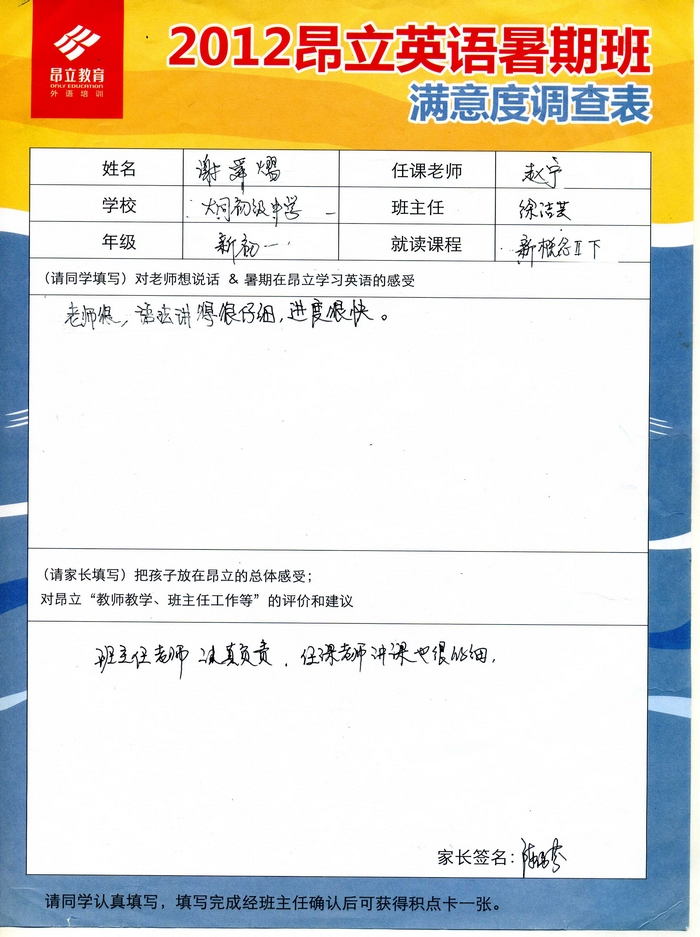 昂立教育
ONLY EDUCATION
外语培训
2012昂立英语暑期班
满意度调查表
姓名 谢舜熠 任课老师 赵宁
学校 大同初级中学 班主任 徐洁芙
年级 新初一 就读课程 新概念II下
(请同学填写)对老师想说话 & 暑期在昂立学习英语的感受
老师很,语法讲得很仔细,进度很快。
(请家长填写)把孩子放在昂立的总体感受;
对昂立“教师教学、班主任工作等”的评价和建议
班主任老师认真负责,任课老师讲课也很仔细,
家长签名:
请同学认真填写,填写完成经班主任确认后可获得积点卡一张。